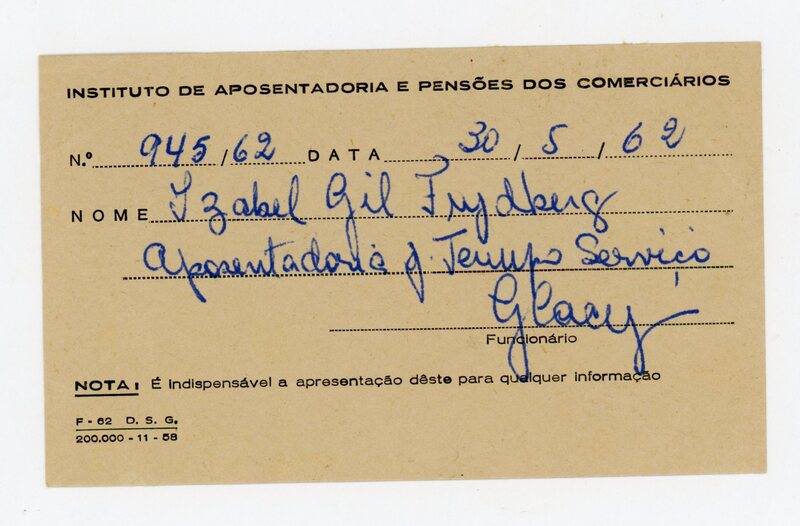 INSTITUTO DE APOSENTADORIA E PENSÕES DOS COMERCIÁRIOS
N.º 945/62 DATA 30/5/62
NOME Izabel Gil Frydberg
Aposentadoria p. Tempo Serviço
Glacy
Funcionário
NOTA: É indispensável a apresentação dêste para qualquer informação
F-62 D. S. G.
200.000-11-58